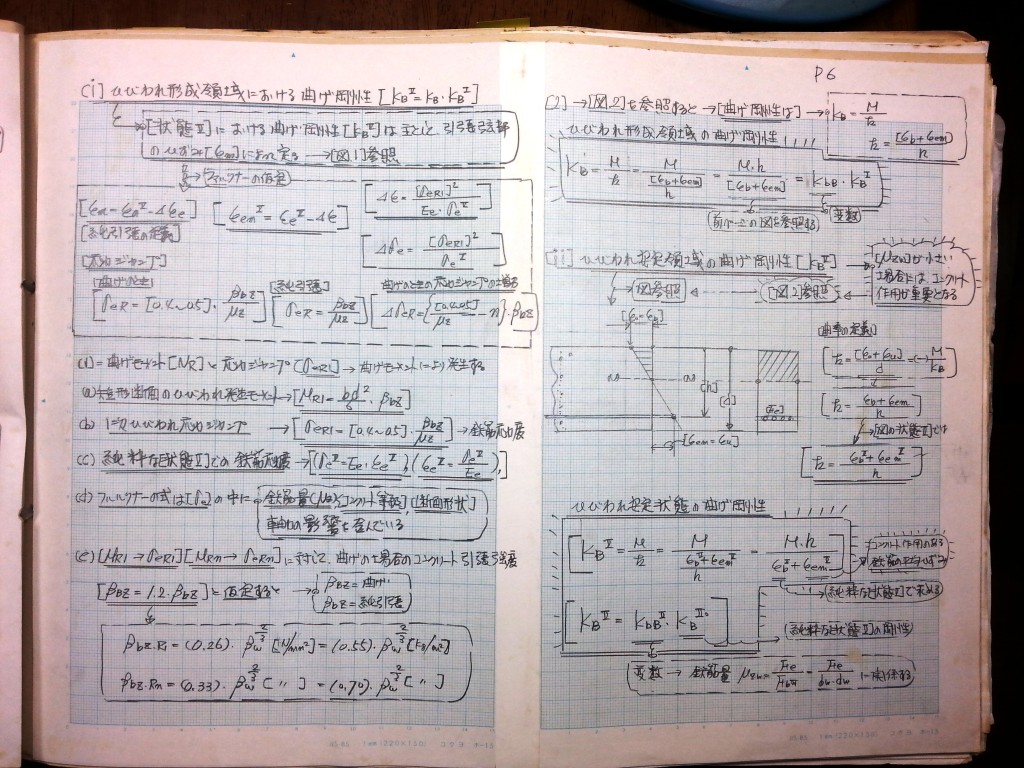 [i] ひびわれ形成領域における曲げ剛性 [K_B^I = K_B・K_B^II]
→[状態II]における曲げ剛性[K_B^II]は主として引張弦部
のひずみ[εem]によって定る →[図1]参照
[εem = εe^II - Δεe] [εem^II = εe^II - Δε] [Δε = [σeR1]² / Ee・σe^II]
[純引張の定義] [Δσe = [σeR1]² / σe^II]
[応力ジャンプ]
[曲げのとき] [純引張] 曲げのときの応力ジャンプの
[σeR = [0.4~0.5]・βbz/μz] [σeR = βbz/μz] [ΔσeR = {[0.4~0.5]/μz - n}・βbz]
(1) = 曲げモーメント[MR]と応力ジャンプ[σeR] → 曲げモーメントにより発生する
(a) 矩形断面のひびわれ発生モーメント→[MR1 = bd²/6・βbz]
(b) 1次ひびわれ応力ジャンプ →[σeR1 = [0.4~0.5]・βbz/μz]→鉄筋応力度
(c) 純粋な[状態II]での鉄筋応力度→[σe^II = Ee・εe^II], (εe^II = σe^II/Ee),]
(d) の式は[σe]の中に 鉄筋量(μz), コンクリート等級, [断面形状]
軸力の影響を含んでいる
(e) [MR1→σeR1] [MRn→σeRn]に対して、曲げの場合のコンクリート引張強度
[βbz = 1.2・βbz]と仮定すると → βbz = 曲げ
βbz = 純引張
βbz・R1 = (0.26)・βw^(2/3) [N/mm²] = (0.55)・βw^(2/3) [kg/cm²]
βbz・Rn = (0.33)・βw^(2/3) [〃] = (0.70)・βw^(2/3) [〃]
P6
(2) →[図.2]を参照すると→[曲げ剛性は] → K_B = M/k
k = [εb+εem]/h
ひびわれ形成領域の曲げ剛性
K_B = M/k = M/([εb+εem]/h) = M・h/[εb+εem] = K_bB・K_B^II
[変数]
[ii] ひびわれ安定領域の曲げ剛性 [K_B^II] → [μzw]が小さい
場合には、コンクリート
作用が重要となる
[図参照] ← [図.2]参照
[εo = εb]
[h] [d]
[εem = εu]
[曲率の定義]
[k = [εo+εu]/d ↔ M/K_B]
[k = εb+εem/h]
[図の状態II]では
[k = εb^II+εem^II/h]
ひびわれ安定状態の曲げ剛性
[K_B^II = M/k = M/(εb^II+εem^II/h) = M・h/εb^II+εem^II]
コンクリート作用のある
鉄筋の平均ひずみ
純粋な[状態II]で求める
[K_B^II = K_bB^II・K_B^IIo]
[純粋な状態IIの剛性]
変数 → 鉄筋量 μzw = Fe/Fbz = Fe/bw・dw に関係する